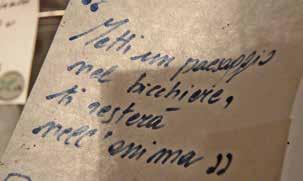 “
Metti un paesaggio
nel bicchiere,
ti resterà
nell'anima »